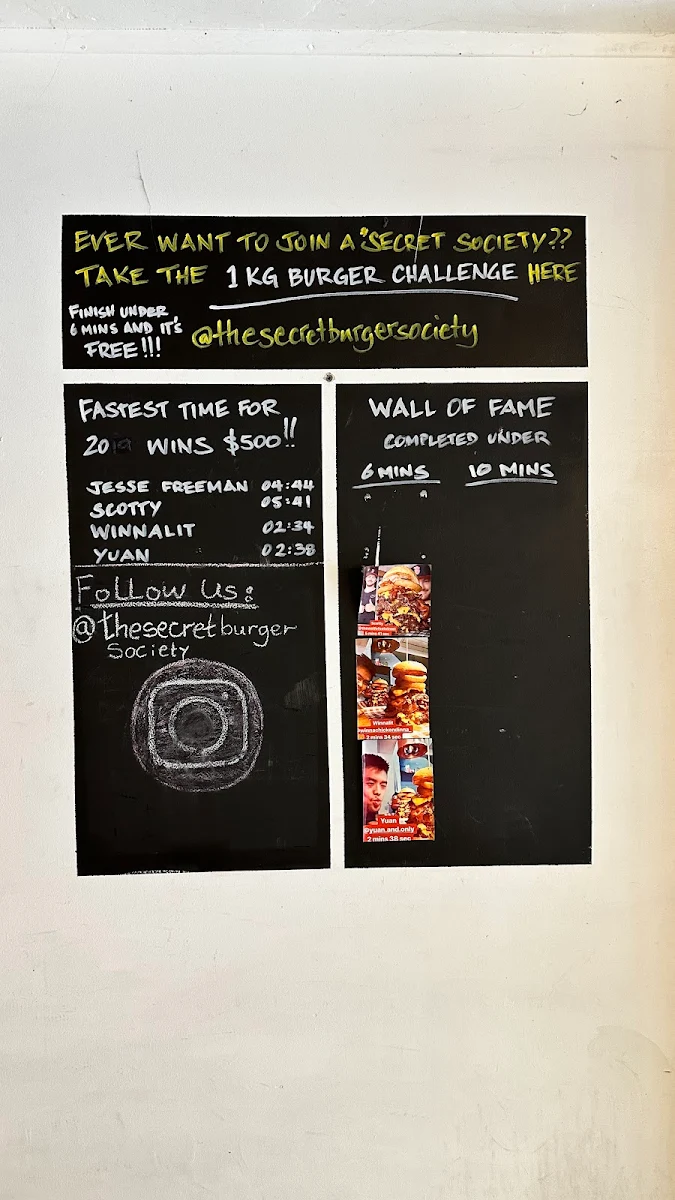 EVER WANT TO JOIN A "SECRET SOCIETY??
TAKE THE 1 KG BURGER CHALLENGE HERE
FINISH UNDER
6 MINS AND IT'S
FREE!!!
@thesecretburgersociety
FASTEST TIME FOR
20 WINS $500!!
JESSE FREEMAN 04:44
SCOTTY 05:41
WINNALIT 02:34
YUAN 02:38
Follow Us:
@thesecretburger
Society
WALL OF FAME
COMPLETED UNDER
6 MINS 10 MINS
Winnalit
2 mins 34 sec
Yuan
@yuan.and.only
2 mins 38 sec